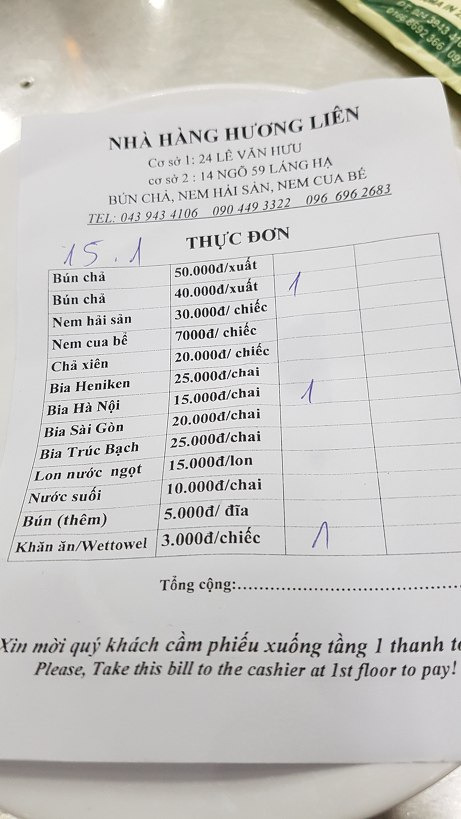 NHÀ HÀNG HƯƠNG LIÊN
Cơ sở 1: 24 LÊ VĂN HƯU
cơ sở 2 : 14 NGÕ 59 LÁNG HẠ
BÚN CHẢ, NEM HẢI SẢN, NEM CUA BÉ
TEL: 043 943 4106 090 449 3322 096 696 2683
15.1 THỰC ĐƠN
Bún chả 50.000đ/xuất
Bún chả 40.000đ/xuất 1
Nem hải sản 30.000đ/ chiếc
Nem cua bể 7000đ/ chiếc
Chả xiên 20.000đ/ chiếc
Bia Heniken 25.000đ/chai
Bia Hà Nội 15.000đ/chai 1
Bia Sài Gòn 20.000đ/chai
Bia Trúc Bạch 25.000đ/chai
Lon nước ngọt 15.000đ/lon
Nước suối 10.000đ/chai
Bún (thêm) 5.000đ/ đĩa
Khăn ăn/Wettowel 3.000đ/chiếc 1
Tổng cộng:
Xin mời quý khách cầm phiếu xuống tầng 1 thanh
Please, Take this bill to the cashier at 1st floor to pay!